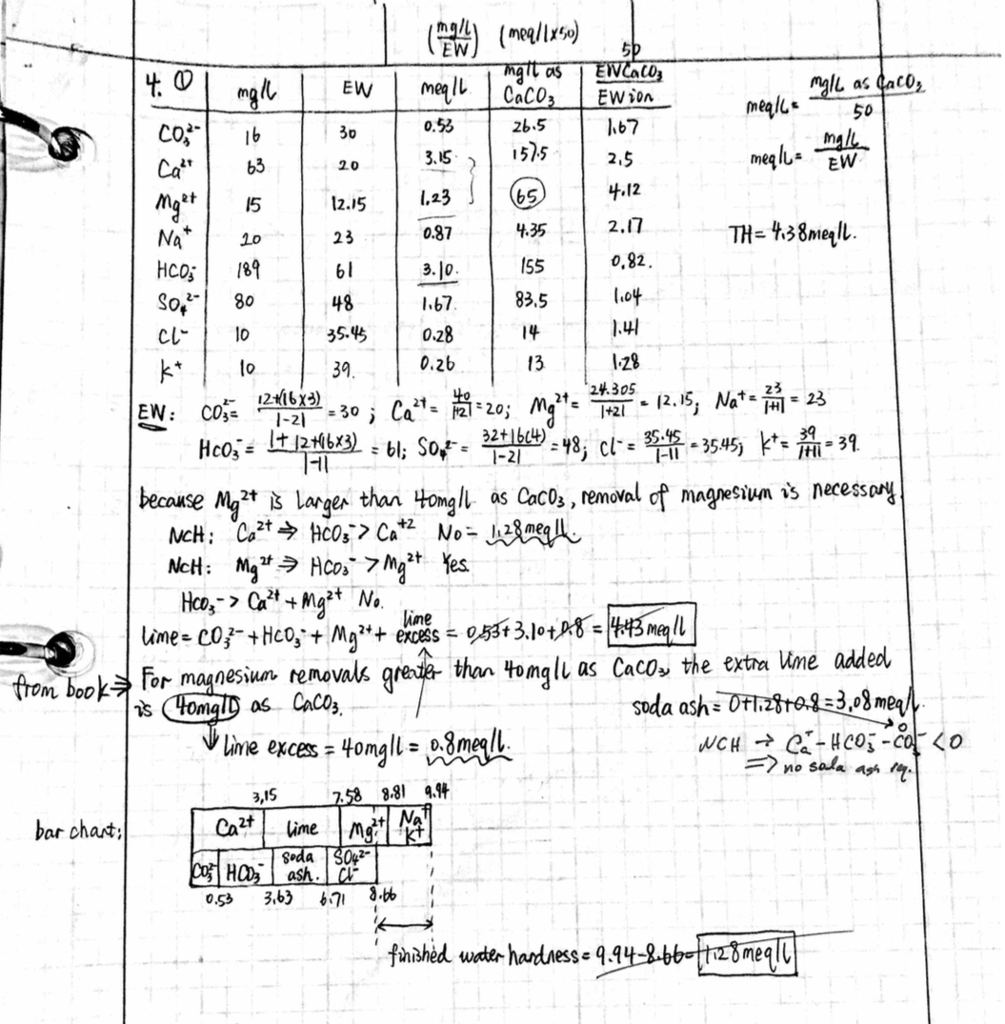 (mg/L / EW) (meq/l×50)
4. ① mg/L EW meq/L mg/L as CaCO₃ 50 EWCaCO₃ / EW ion
CO₃²⁻ 16 30 0.53 26.5 1.67
Ca²⁺ 63 20 3.15 157.5 2.5
Mg²⁺ 15 12.15 1.23 65 4.12
Na⁺ 20 23 0.87 4.35 2.17
HCO₃⁻ 189 61 3.10 155 0.82.
SO₄²⁻ 80 48 1.67 83.5 1.04
Cl⁻ 10 35.45 0.28 14 1.41
K⁺ 10 39. 0.26 13 1.28
meq/L = mg/L as CaCO₃ / 50
meq/L = mg/L / EW
TH = 4.38 meq/L.
EW: CO₃²⁻ = 12+(16×3) / |-2| = 30 ; Ca²⁺ = 40 / |+2| = 20; Mg²⁺ = 24.305 / |+2| = 12.15; Na⁺ = 23 / |+1| = 23
HCO₃⁻ = 1+12+(16×3) / |-1| = 61; SO₄²⁻ = 32+16(4) / |-2| = 48; Cl⁻ = 35.45 / |-1| = 35.45; K⁺ = 39 / |+1| = 39.
because Mg²⁺ is larger than 40mg/L as CaCO₃, removal of magnesium is necessary
NCH: Ca²⁺ ⇒ HCO₃⁻ > Ca⁺² No = 1.28 meq/L
NCH: Mg²⁺ ⇒ HCO₃⁻ > Mg²⁺ Yes.
HCO₃⁻ > Ca²⁺ + Mg²⁺ No.
lime = CO₃²⁻ + HCO₃⁻ + Mg²⁺ + lime excess = 0.53+3.10+0.8 = 4.43 meq/L
from book ⇒ For magnesium removals greater than 40mg/L as CaCO₃, the extra lime added
is 40mg/L as CaCO₃.
soda ash = 0+1.28+0.8 = 3.08 meq/L.
0
NCH → Ca⁺ - HCO₃⁻ - CO₃⁻ < 0
⇒ no soda ash req.
lime excess = 40mg/L = 0.8 meq/L.
3.15 7.58 8.81 9.94
bar chart; Ca²⁺ lime Mg²⁺ Na⁺ K⁺
CO₃²⁻ HCO₃⁻ soda ash. SO₄²⁻ Cl⁻
0.53 3.63 6.71 8.66
finished water hardness = 9.94-8.66 = 1.28 meq/L